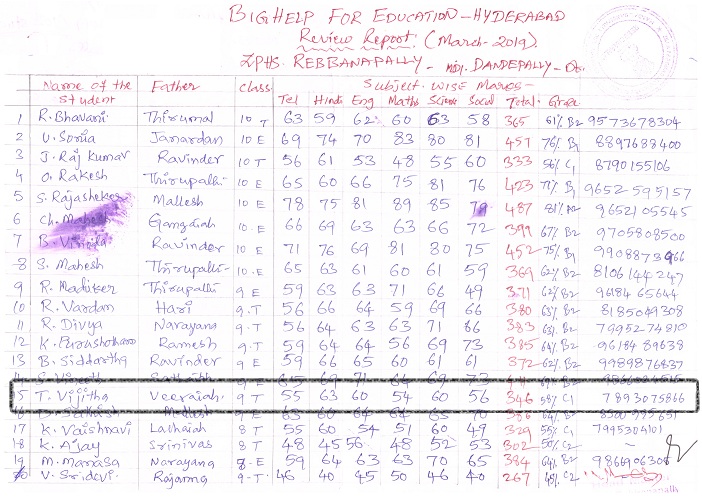 BIGHELP FOR EDUCATION - HYDERABAD
Review Report (March-2019)
ZPHS. REBBANAPALLY - DANDEPALLY -
Subject. WISE Marks -
Name of the Student Father class Tel Hindi Eng Maths Science Social Total Grade
1 R. Bhavani Thirumal 10 T 63 59 62 60 63 58 365 61% B2 9573678304
2 V. Sonia Janardan 10 E 69 74 70 83 80 81 457 76% B1 8897688400
3 J. Raj Kumar Ravinder 10 T 56 61 53 48 55 60 333 56% C1 8790155106
4 O. Rakesh Thirupathi 10 E 65 60 66 75 81 76 423 71% B1 9652595157
5 S. Rajasheker Mallesh 10 E 78 75 81 89 85 79 487 81% A2 9652105545
6 Ch. Mahesh Gangaiah 10 E 66 69 63 63 66 72 399 67% B2 9705808500
7 B. Ravinder 10 E 71 76 69 81 80 75 452 75% B1 9908873966
8 S. Mahesh Thirupathi 10 E 65 63 61 60 61 59 369 62% B2 8106144247
9 R. Thirupathi 9 E 59 63 63 71 66 49 371 62% B2 9618465644
10 R. Vardan Hari 9 T 56 66 64 59 69 66 380 63% B2 8185049308
11 R. Divya Narayana 9 T 56 64 63 63 71 86 383 63% B2 7995274810
12 K. Purushotham Ramesh 9 T 59 64 64 56 69 73 385 64% B2 9618489638
13 B. Siddartha Ravinder 9 E 59 66 65 60 61 61 372 62% B2 9989876837
15 T. Vijitha Veeraiah 9 T 55 63 60 54 60 56 346 58% C1 7893075866
17 K. Vaishnavi Lachaiah 8 T 55 60 54 51 60 49 329 55% C1 7995304101
18 K. Ajay Srinivas 8 T 48 45 56 48 52 53 302 50% C2 -
19 M. Manasa Narayana 8 E 59 64 63 63 70 65 384 64% B2 9866906308
20 V. Sridevi Rajanna 9 T 46 40 45 50 46 40 267 45% C2